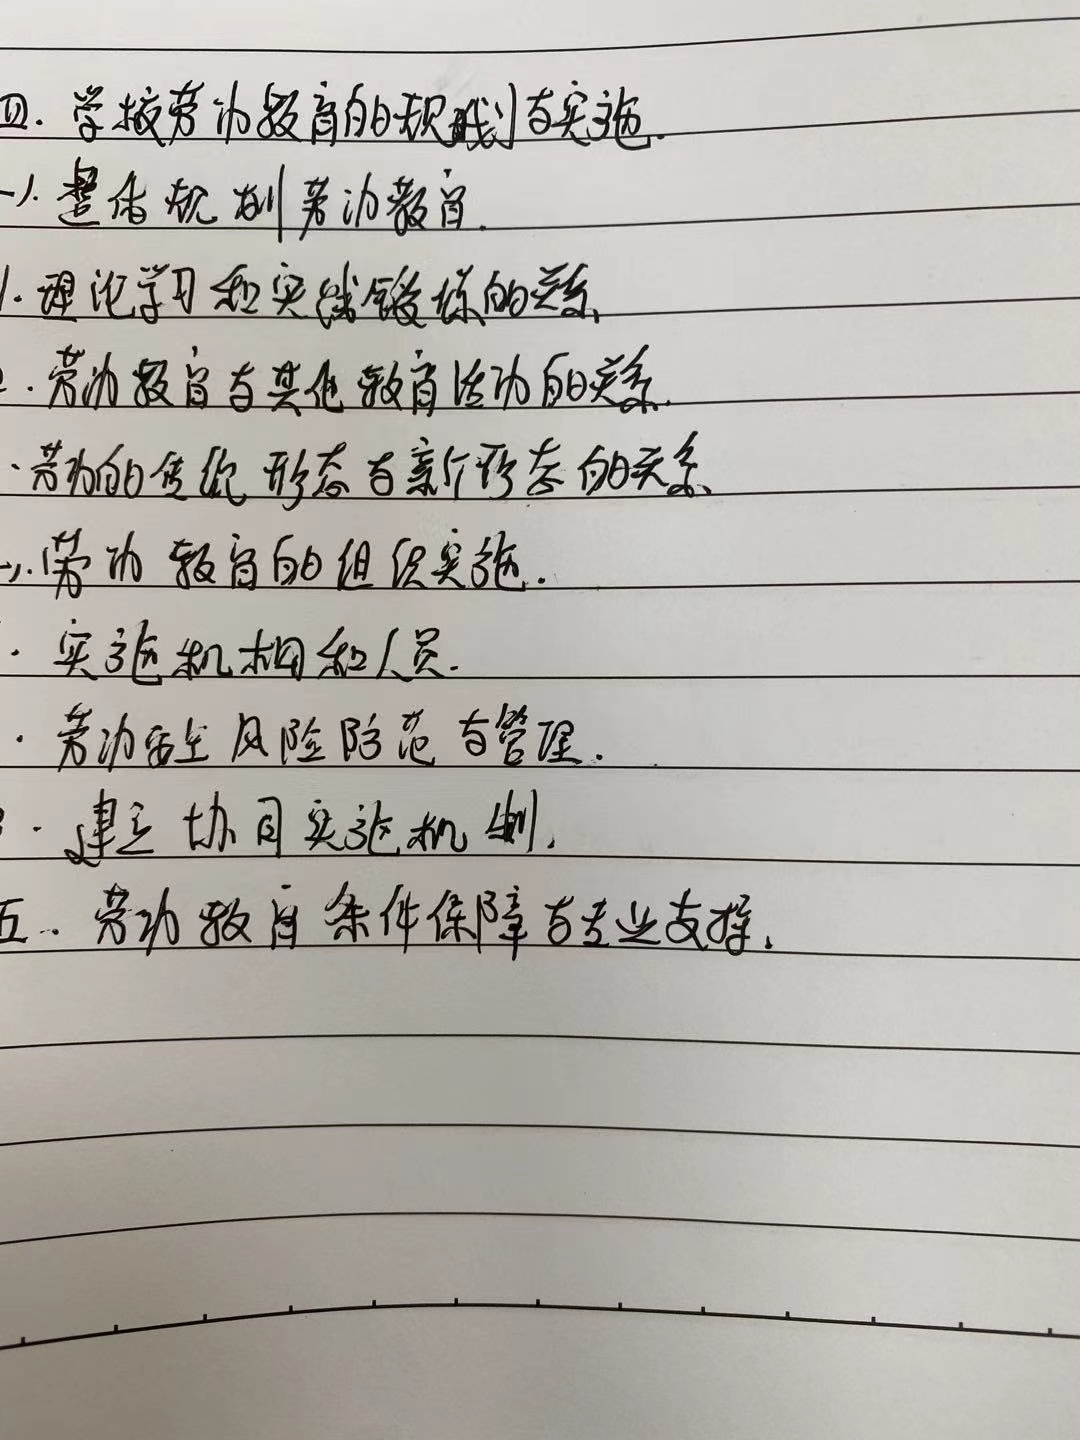 四.学校劳动教育的规划与实施.
一).整体规划劳动教育.
1.理论学习和实践锻炼的关系.
2.劳动教育与其他教育活动的关系.
.劳动的传统形态与新形态的关系.
).劳动教育的组织实施.
.实施机构和人员.
.劳动安全风险防范与管理.
3.建立协同实施机制.
五.劳动教育条件保障与专业支撑.